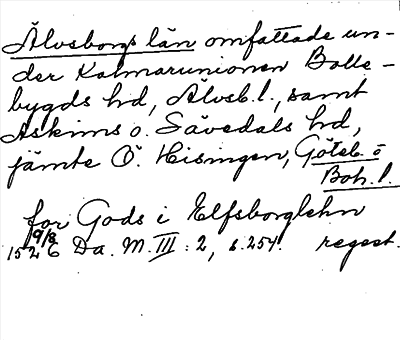 Älvsborgs län omfattade un-
der Kalmarunionen Bolle-
bygds hd, Älvsb. l., samt
Askims o. Sävedals hd,
jämte Ö. Hisingen, Göteb. o
Boh. l.
for Gods i Elfsborglehn
19/8
1526 Da. M. III : 2, s. 254. regest.